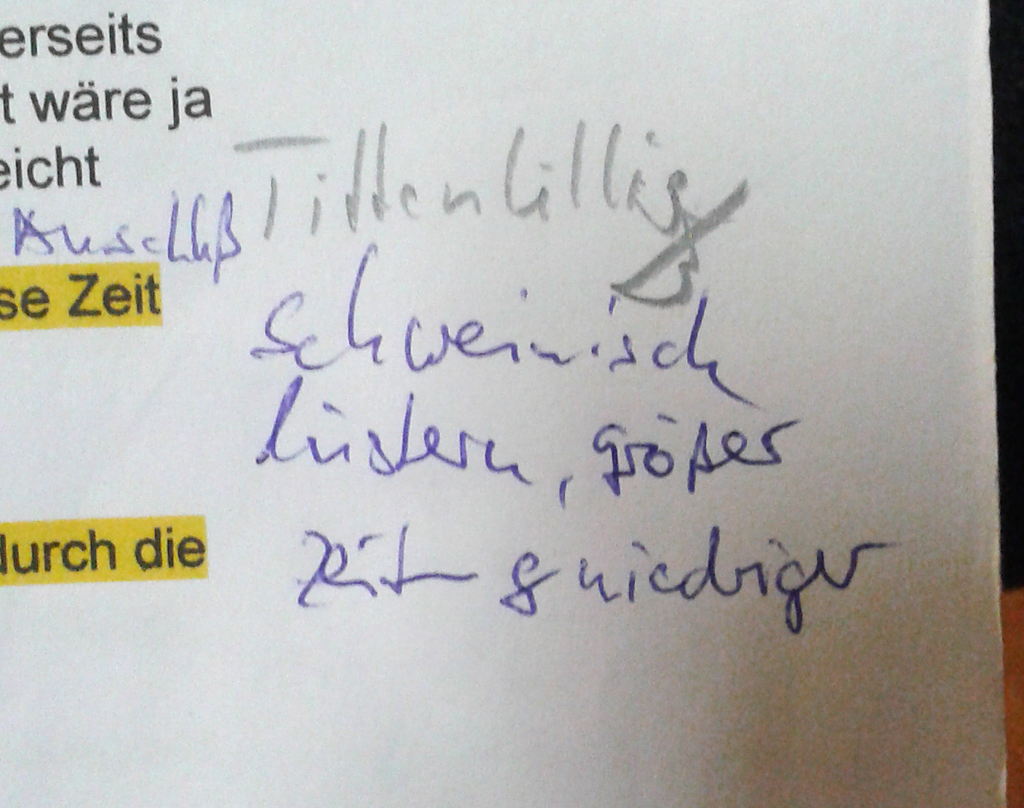 erseits
t wäre ja
eicht
Tittenbillig
Anschluß
se Zeit
schweinisch
lüstern, größer
durch die
Zeit & niedriger